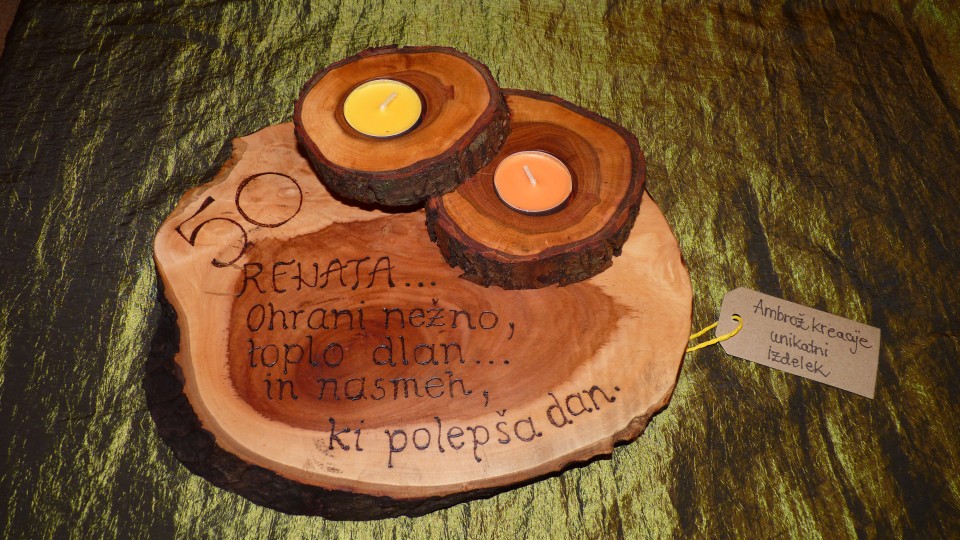 50
RENATA...
Ohrani nežno,
toplo dlan...
in nasmeh,
ki polepša dan.
Ambrož kreacije
unikatni
Izdelek